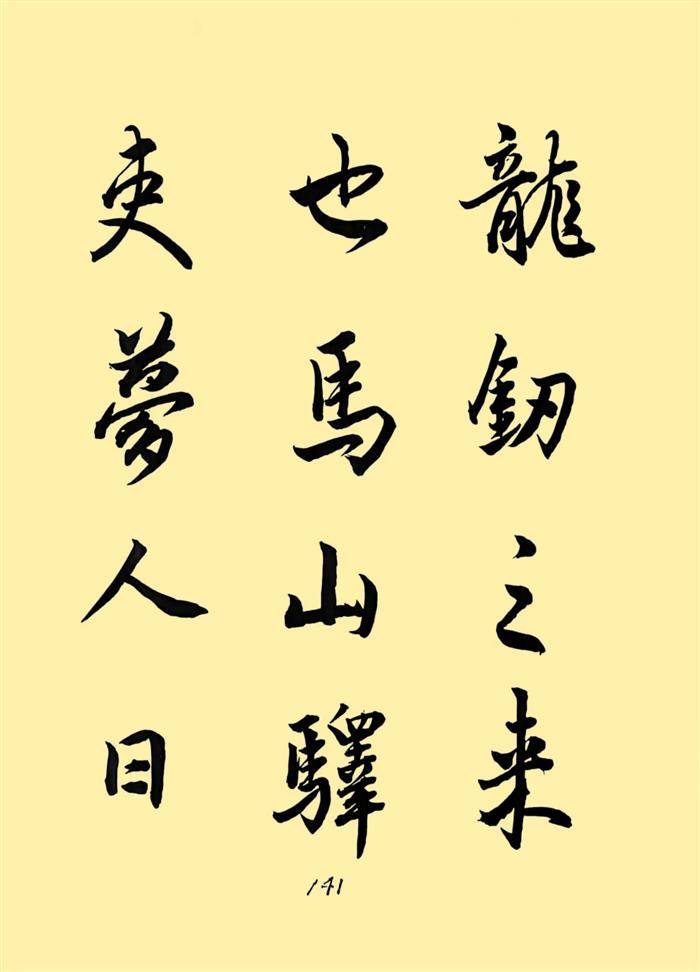 龍釰之来
也馬山驛
吏夢人曰
141